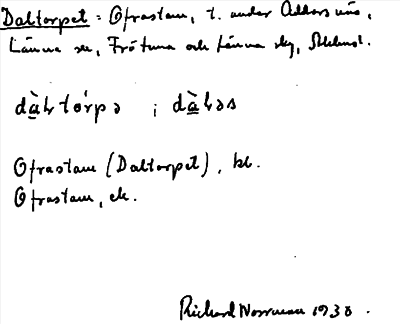 Daltorpet = Ofrastam, t. under Addarsnäs,
Länna sn, Frötuna och Länna skg, Stkhlms l.
dàltórpə ; dàləs
Ofrastam (Daltorpet), bl.
Ofrastam, ek.
Richard Norrman 1938.